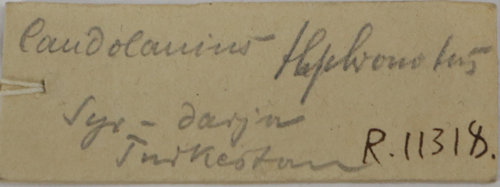 Caudolanius tephronotus
Syr-darja
Turkestan R.11318.